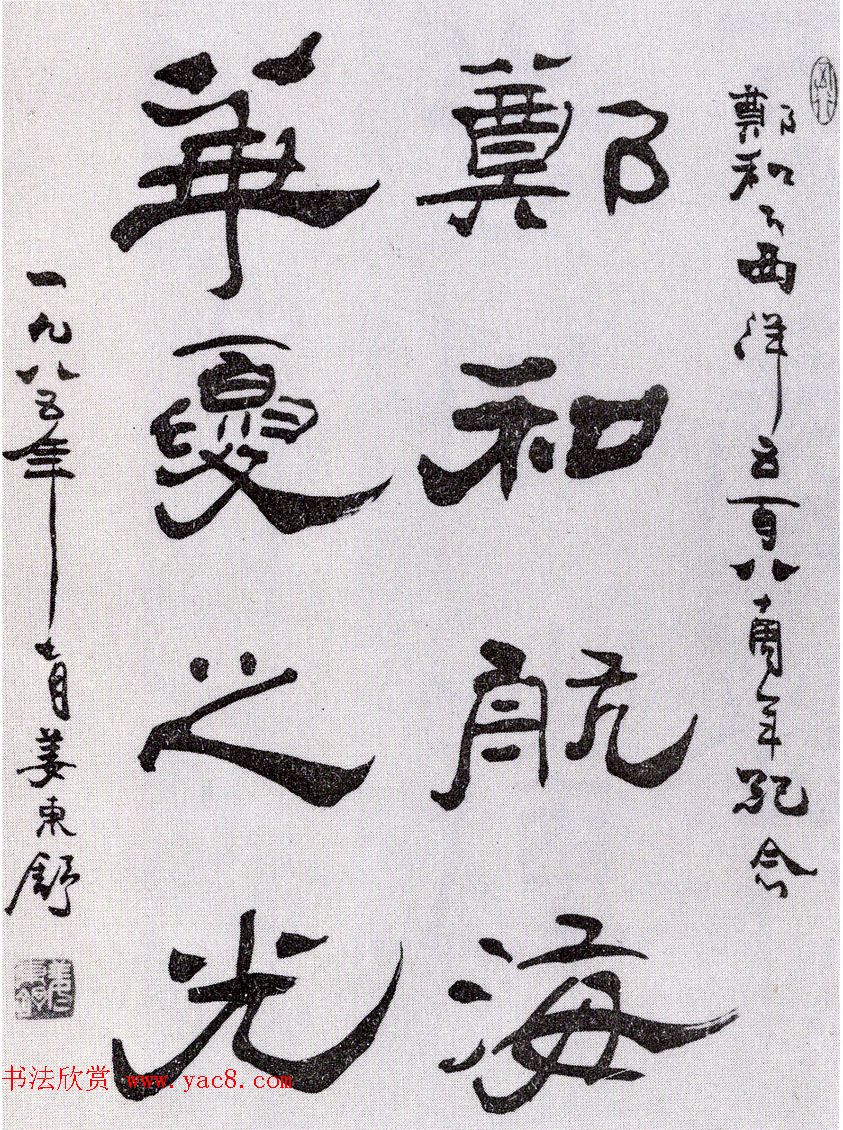 鄭和下西洋五百八十周年紀念
鄭和航海
華夏之光
一九八五年七月姜東舒
姜東舒
书法欣赏 www.yac8.com